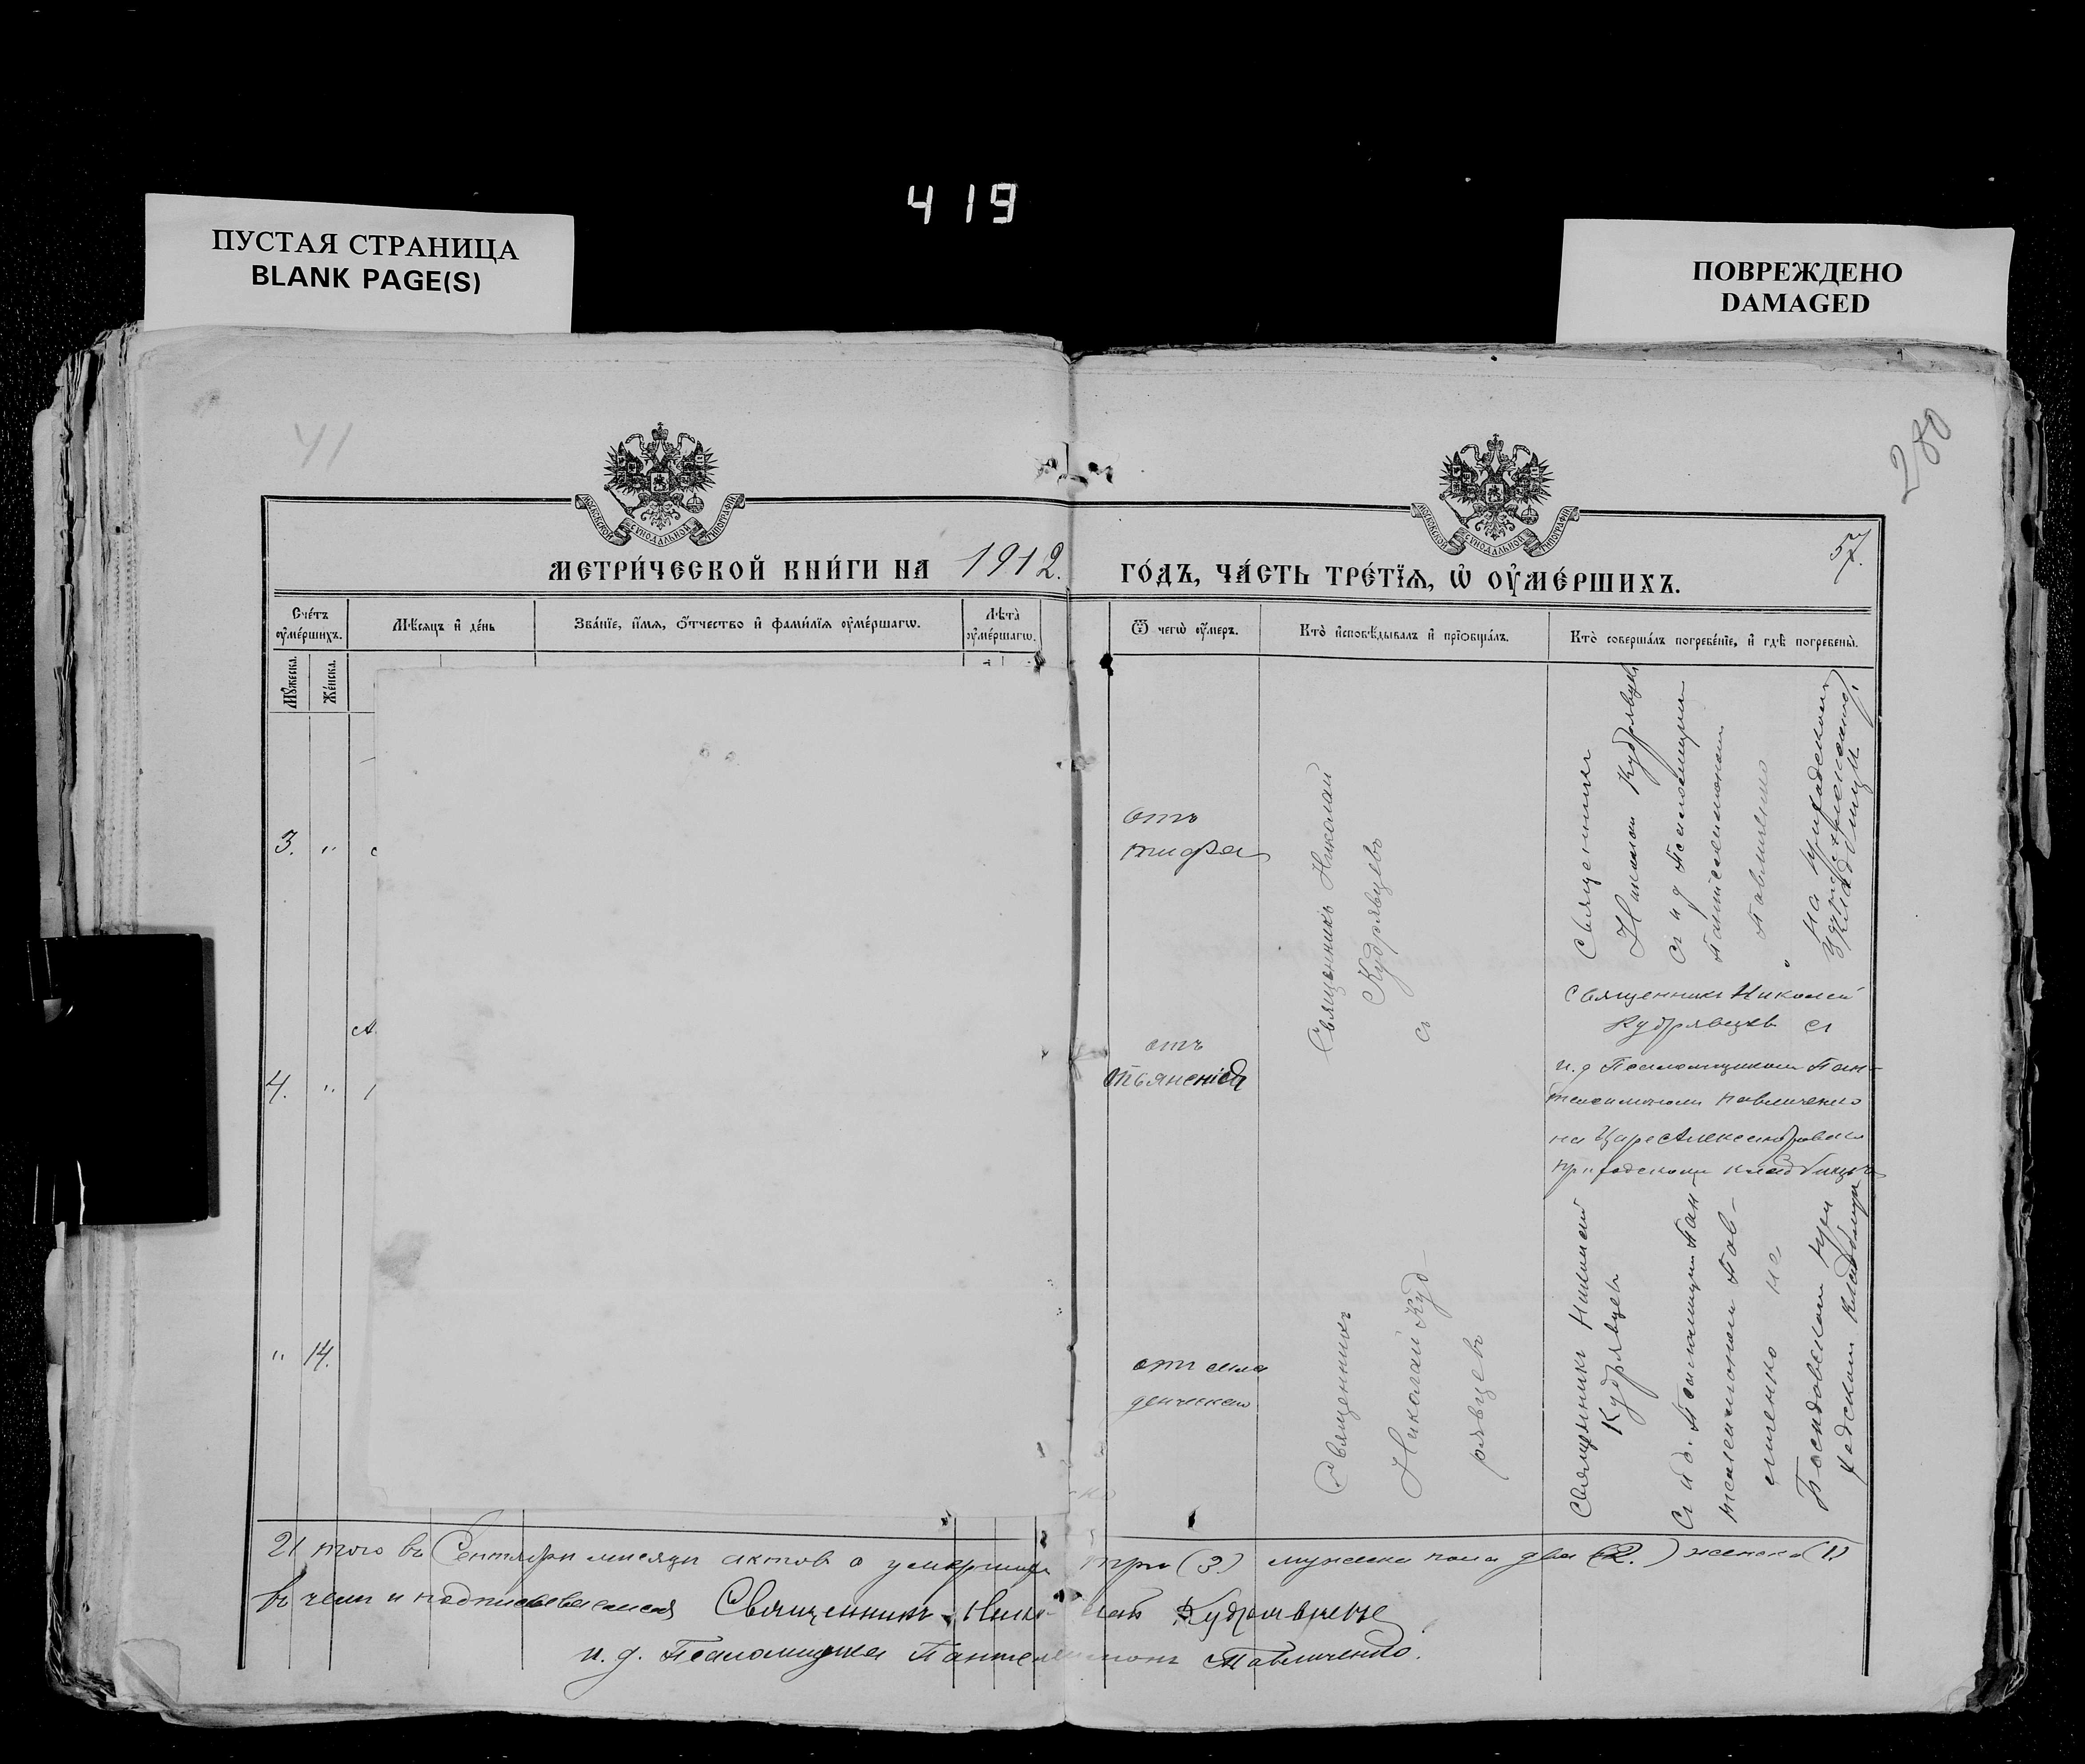 419
ПУСТАЯ СТРАНИЦА
BLANK PAGE(S)
ПОВРЕЖДЕНО
DAMAGED
41
280
МОСКОВСКОЙ СѴНОДАЛЬНОЙ ТИПОГРАФІИ
МОСКОВСКОЙ СѴНОДАЛЬНОЙ ТИПОГРАФІИ
МЕТРИ́ЧЕСКОЙ КНИ́ГИ НА 1912.
ГО́ДЪ, ЧА́СТЬ ТРЕ́ТЇѦ, Ѡ҆ ОУ҆МЕ́РШИХЪ.
57.
Сче́тъ оу҆ме́ршихъ.
Мѣ́сяцъ и҆ де́нь
Зва́нїе, и҆́мя, ѻ҆́тчество и҆ фами́лїя оу҆ме́ршагѡ.
Лѣта̀ оу҆ме́ршагѡ.
Ѿ чегѡ̀ оу҆́меръ.
Кто̀ и҆сповѣ́дывалъ и҆ прїѡбща́лъ.
Кто̀ соверша́лъ погребе́нїе, и҆ гдѣ̀ погребены̀.
Мꙋ́жеска.
Же́нска.
3. "
отъ
тифа
Священникъ Николай
Кудрявцевъ
съ
Священникъ
Николай Кудрявцевъ
съ и д Псаломщика
Пантелеимоном
Павличенко
на приходском
кладбищѣ.
4. "
отъ
Священникъ Николай
Кудрявцев съ
и.д Псаломщиком Пан-
телеимоном Павличенко
на Царе Александровско
приходском кладбищѣ
" 14.
отъ мла
денческой
Священникъ
Николай Куд-
рявцевъ
Священникъ Николай
Кудрявцевъ
съ и д. Псаломщик Пан-
телеимоном Пав-
личенко на
при
ходском кладбищѣ
того въ Сентябрѣ мѣсяцѣ актов о умерших три (3) мужска пола два (2.) женска (1)
въ чем и подписываемся Священникъ Николай Кудрявцевъ
и. д. Псаломщика Пантелеимонъ Павличенко.